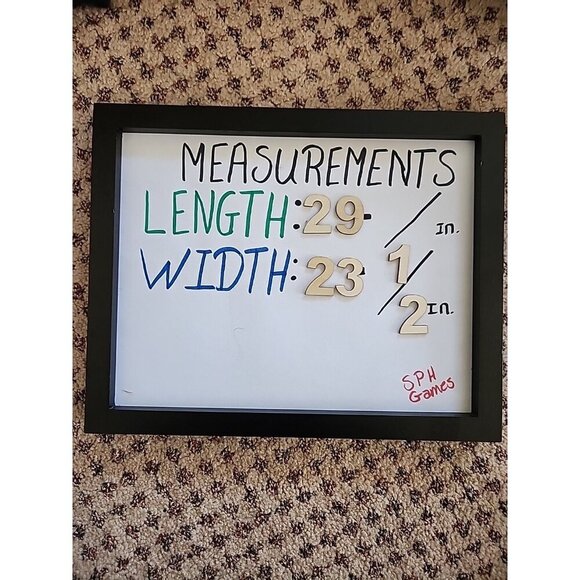 MEASUREMENTS
LENGTH: 29- / IN.
WIDTH: 23 1/2 IN.
SPH
Games